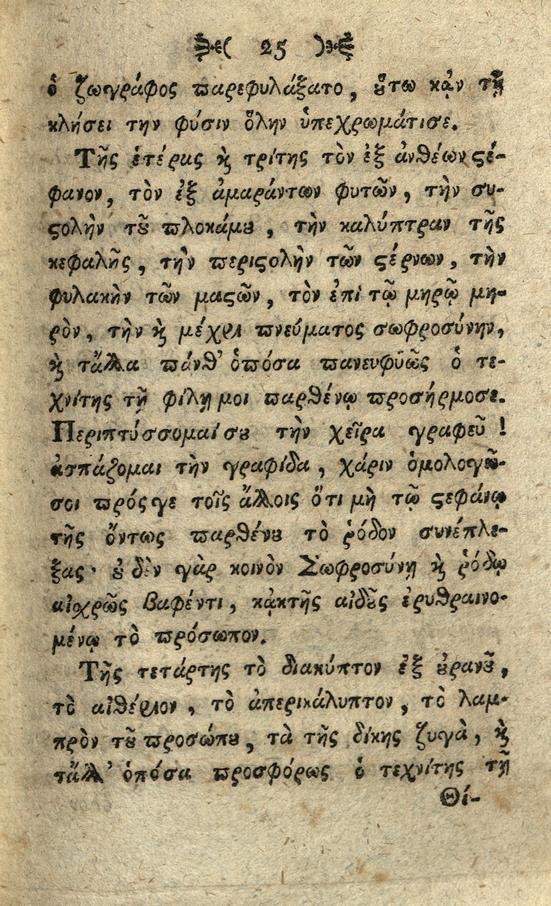 25
ὁ ζωγράφος παρεφυλάξατο, ȣ̔́τω κᾀν τῇ
κλήσει την φύσιν ὅλην ὑπεχρωμάτισε.
Τῆς ἑτέρας ϗ τρίτης τὸν ἐξ ἀνθέων ϛέ-
φανον, τὸν ἐξ ἀμαράντων φυτῶν, τὴν συ-
ϛολὴν τȣ͂ πλοκάμȣ, τὴν καλύπτραν τῆς
κεφαλῆς, τὴν περιϛολὴν τῶν ϛέρνων, τὴν
φυλακὴν τῶν μαϛῶν, τὸν ἐπὶ τῷ μηρῷ μη-
ρὸν, τὴν ϗ μέχρι πνεύματος σωφροσύνην,
ϗ τἄλλα πάνθ' ὁπόσα πανευφυῶς ὁ τε-
χνίτης τῇ φίλῃ μοι παρθένῳ προσήρμοσε.
Περιπτύσσομαί σȣ τὴν χεῖρα γραφεῦ !
ἀσπάζομαι τὴν γραφίδα, χάριν ὁμολογῶ-
σοι πρός γε τοῖς ἄλλοις ὅτι μὴ τῷ ϛεφάνῳ
τῆς ὄντως παρθένȣ τὸ ῥόδον συνέπλε-
ξας· ȣ̓ δὲν γὰρ κοινὸν Σωφροσύνῃ ϗ ῥόδῳ
αἰχρῶς βαφέντι, κᾀκτῆς αἰδȣ͂ς ἐρυθραινο-
μένῳ τὸ πρόσωπον.
Τῆς τετάρτης τὸ διακύπτον ἐξ ȣ̓ρανȣ͂,
τὸ αἰθέριον, τὸ ἀπερικάλυπτον, τὸ λαμ-
πρὸν τȣ͂ προσώπȣ, τὰ τῆς δίκης ζυγὰ, ϗ
τἄλλ' ὁπόσα προσφόρως ὁ τεχνίτης τῇ
Θί-